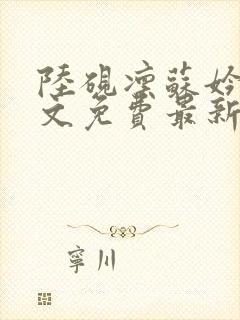 陸硯凛蘇妗
文免費最新
寧川